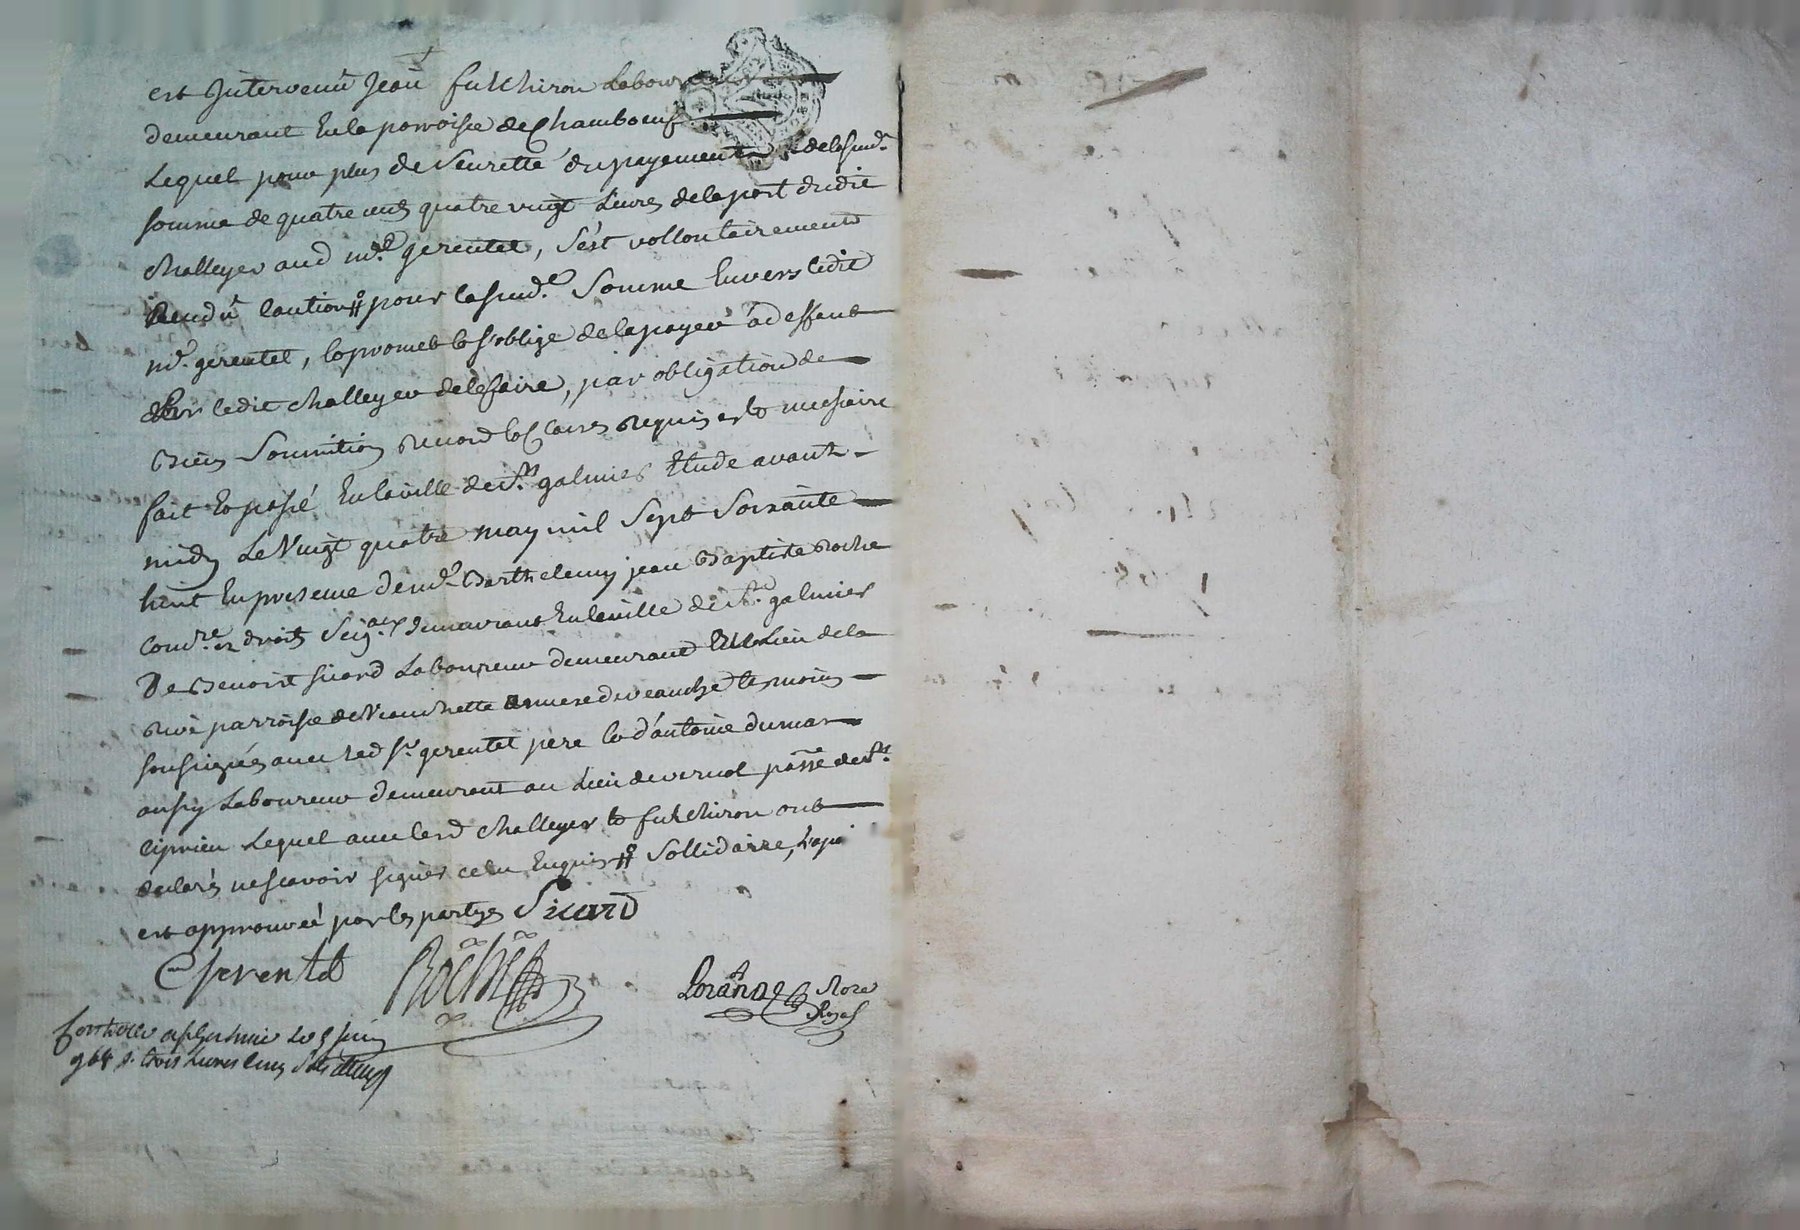 est Intervenu Jean fulchiron Laboureur
demeurant En la parroisse de Chambœuf
Lequel pour plus de seuretté du payement de la sud.e
somme de quatre cens quatre vingt Livres de la part dudit
challeyer aud m.e gerentet, s'est vollontairement
Rendu caution # pour la sud.e somme Envers ledit
m.e gerentet, la promet et s'oblige de la payer à deffaut
par ledit challeyer de le faire, par obligation de
Biens soumitions Renond et Clauses Requises et necessaire
fait et passé En la ville de S.t galmier Etude avant
midy Le Vingt quatre may mil Sept Soixante
huit En presence de m.e Barthelemy jean Baptiste Roche
com.re es droits Seig.aux demeurant En la ville de S.t galmier
De Benoist sicard Laboureur demeurant au Lieu de la
Rive parroisse de Veauchette annexe de veauche temoins
soussignés avec led s.r gerentet pere et d'antoine dumas
aussy Laboureur demeurant au Lieu de vernol parr.e de S.t
ciprien Lequel avec lesd challeyer et fulchiron ont
declarés ne scavoir signer de ce Enquis # sollidaire, L'apo
est approuvéé par les partyes Sicard
Gerentet Roche
Controllé a S.t galmier Le 5 juin
1768 r. trois Livres cinq Sols